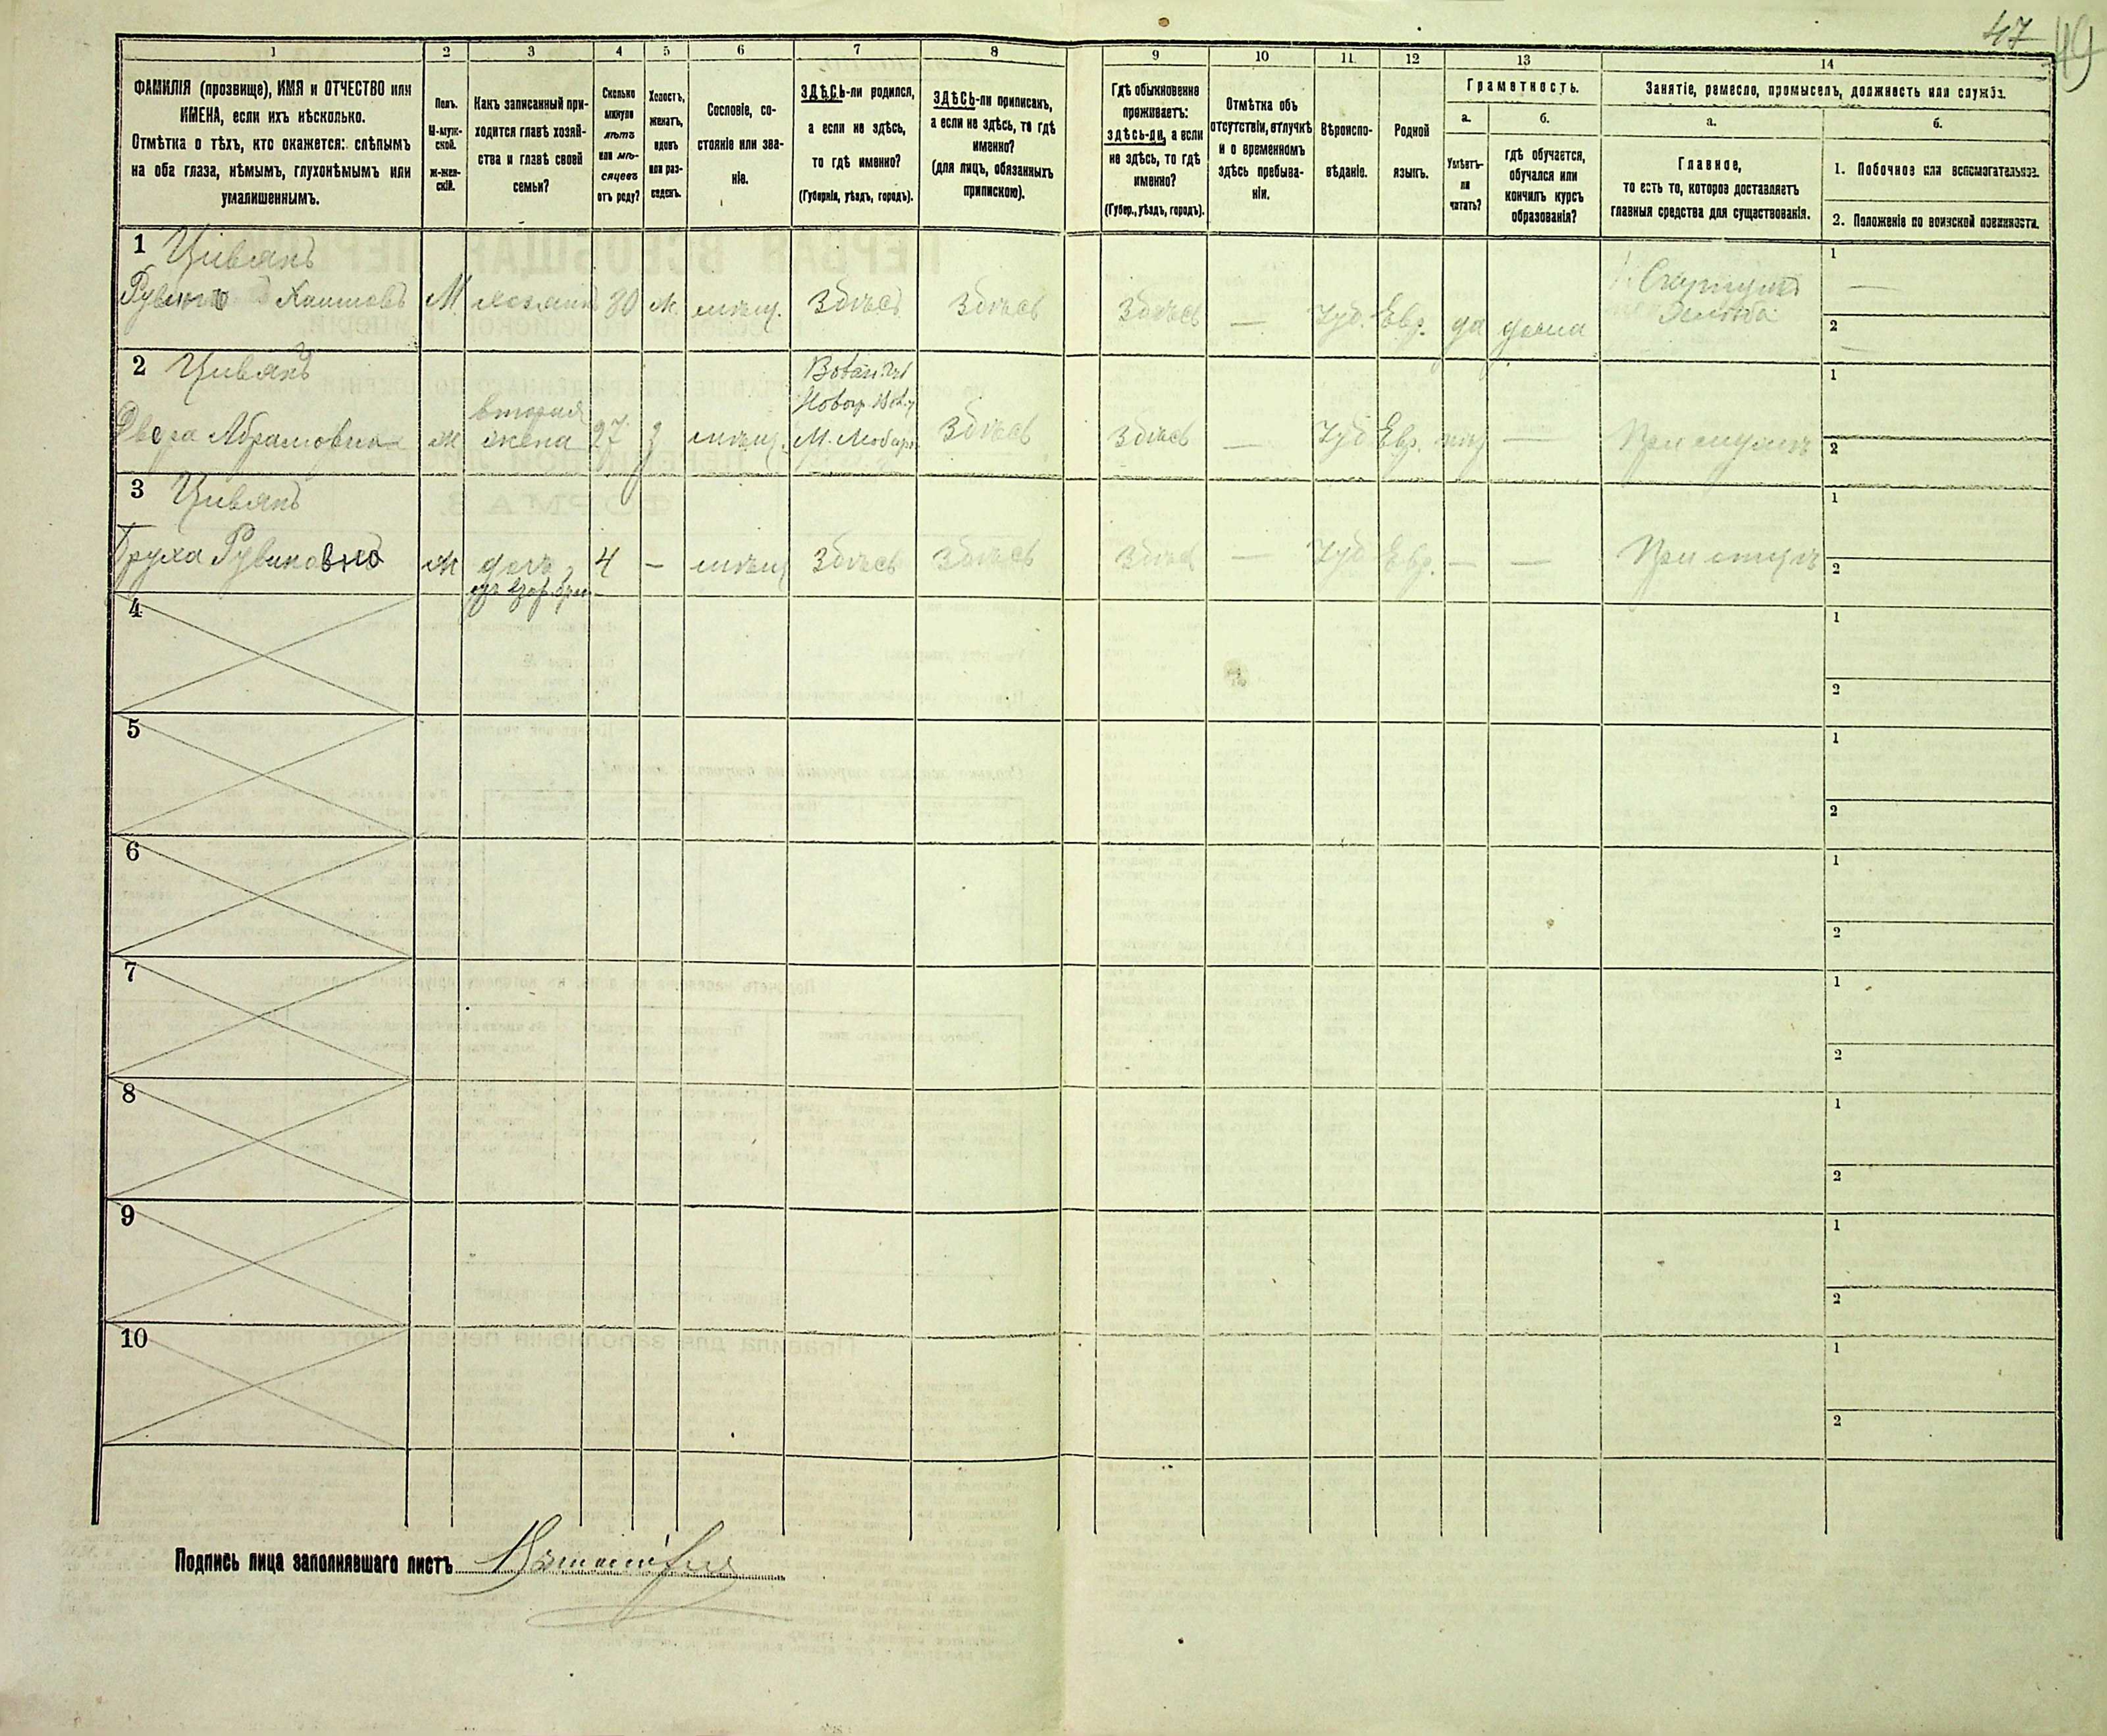 47
49
1
2
3
4
5
6
7
8
9
10
11
12
13
14
ФАМИЛІЯ (прозвище), ИМЯ и ОТЧЕСТВО или
ИМЕНА, если ихъ нѣсколько.
Отмѣтка о тѣхъ, кто окажется: слѣпымъ
на оба глаза, нѣмымъ, глухонѣмымъ или
умалишеннымъ.
Полъ.
М-муж-
ской.
ж-жен-
скій.
Какъ записанный при-
ходится главѣ хозяй-
ства и главѣ своей
семьи?
Сколько
минуло
лѣтъ
или мѣ-
сяцевъ
отъ роду?
Холостъ,
женатъ,
вдовъ
или раз-
веденъ.
Сословіе, со-
стояніе или зва-
ніе.
ЗДѢСЬ-ли родился,
а если не здѣсь,
то гдѣ именно?
(Губернія, уѣздъ, городъ).
ЗДѢСЬ-ли приписанъ,
а если не здѣсь, то гдѣ
именно?
(для лицъ, обязанныхъ
припискою).
Гдѣ обыкновенно
проживаетъ:
здѣсь-ли, а если
не здѣсь, то гдѣ
именно?
(Губер., уѣздъ, городъ).
Отмѣтка объ
отсутствіи, отлучкѣ
и о временномъ
здѣсь пребыва-
ніи.
Вѣроиспо-
вѣданіе.
Родной
языкъ.
Грамотность.
а.
б.
Умѣетъ-
ли
читать?
гдѣ обучается,
обучался или
кончилъ курсъ
образованія?
Занятіе, ремесло, промыселъ, должность или служба.
а.
б.
Главное,
то есть то, которое доставляетъ
главныя средства для существованія.
1. Побочное или вспомогательное.
2. Положеніе по воинской повинности.
1 Цивянъ
Рувинъ Хаимовъ М хозяинъ 30 ж. мѣщ. Здѣсь Здѣсь Здѣсь — Іуд. Евр. да дома
1 —
2 —
2 Цивянъ
Двера Абрамовна ж вторая жена 27 з мѣщ. Здѣсь Здѣсь — Іуд Евр. нѣтъ — При мужѣ
1
2
3 Цивянъ
Груха Рувиновна ж дочь 4 — мѣщ Здѣсь Здѣсь Здѣсь — Іуд Евр. — — При отцѣ
1
2
4
1
2
5
1
2
6
1
2
7
1
2
8
1
2
9
1
2
10
1
2
Подпись лица заполнявшаго листъ